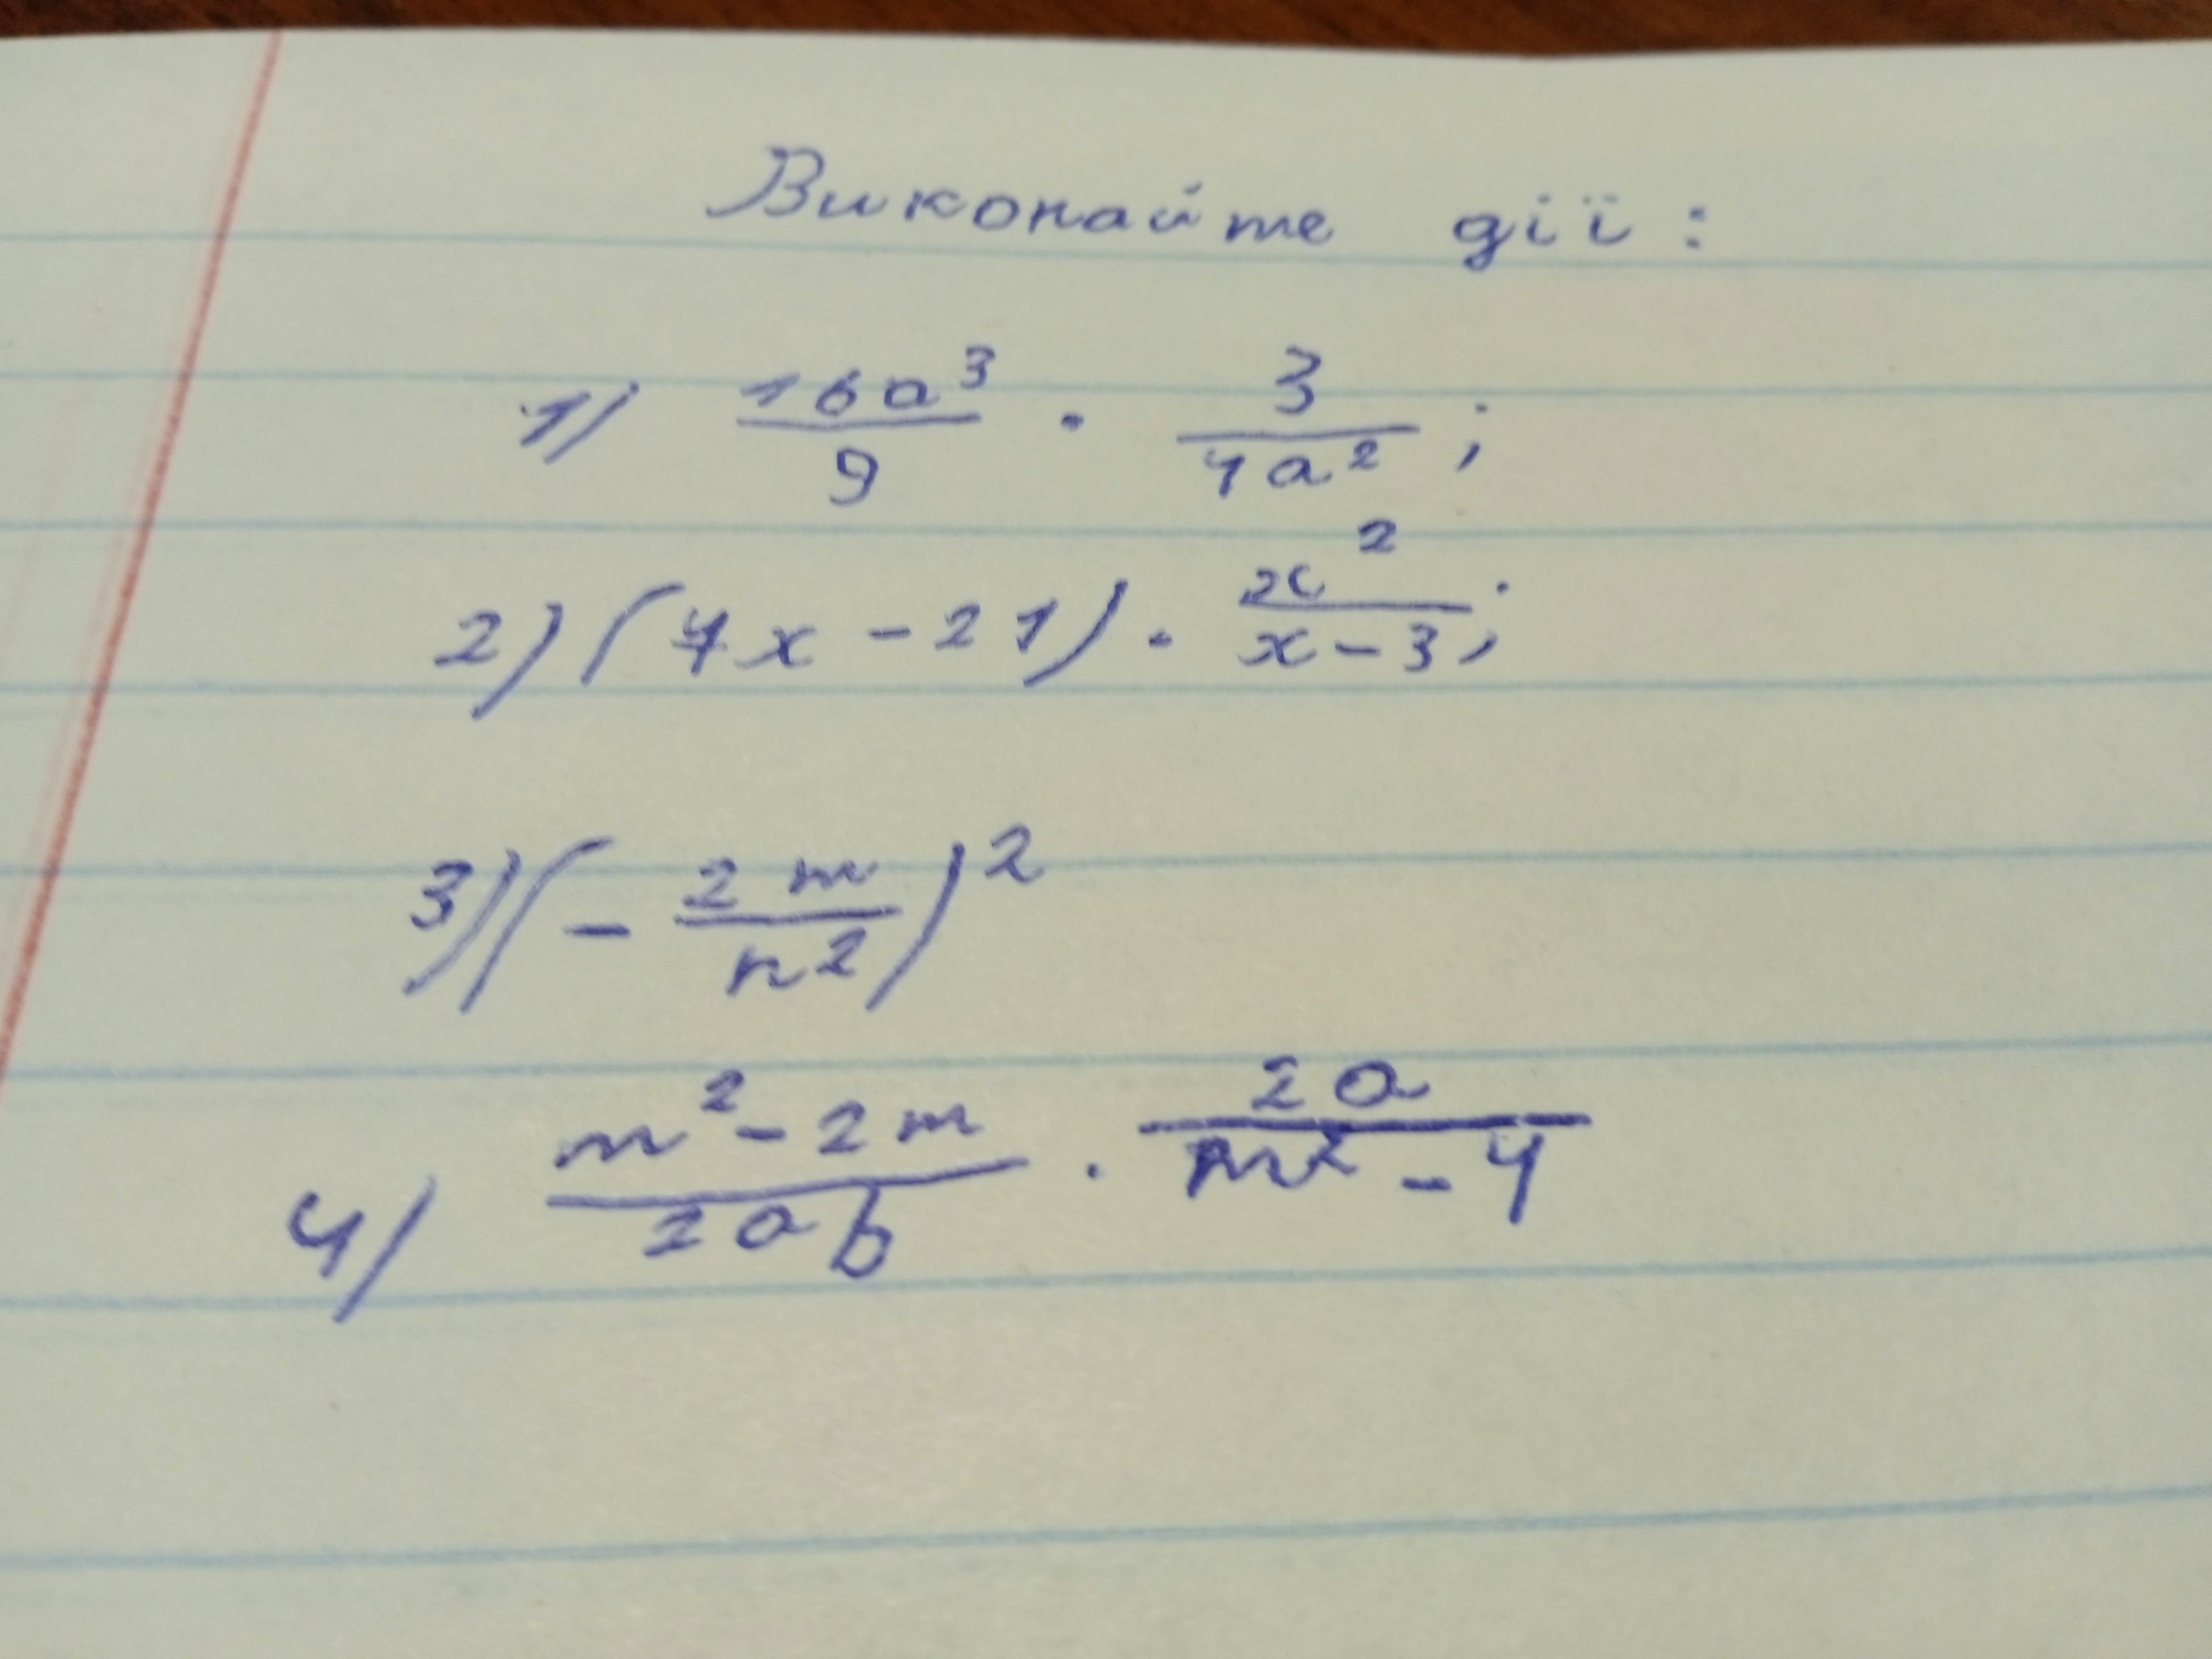 Виконайте дії:
1) \frac{16a^3}{9} · \frac{3}{4a^2};
2) (7x - 21) · \frac{x^2}{x-3};
3) (-\frac{2m}{n^2})^2
4) \frac{m^2 - 2m}{2ab} · \frac{2a}{m^2 - 4}